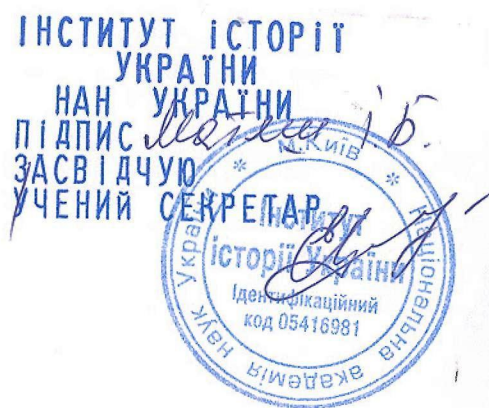 ІНСТИТУТ ІСТОРІЇ
УКРАЇНИ
НАН УКРАЇНИ
ПІДПИС І.Б.
ЗАСВІДЧУЮ
УЧЕНИЙ СЕКРЕТАР
* М.Київ * Національна академія наук України
Інститут
історії України
Ідентифікаційний
код 05416981